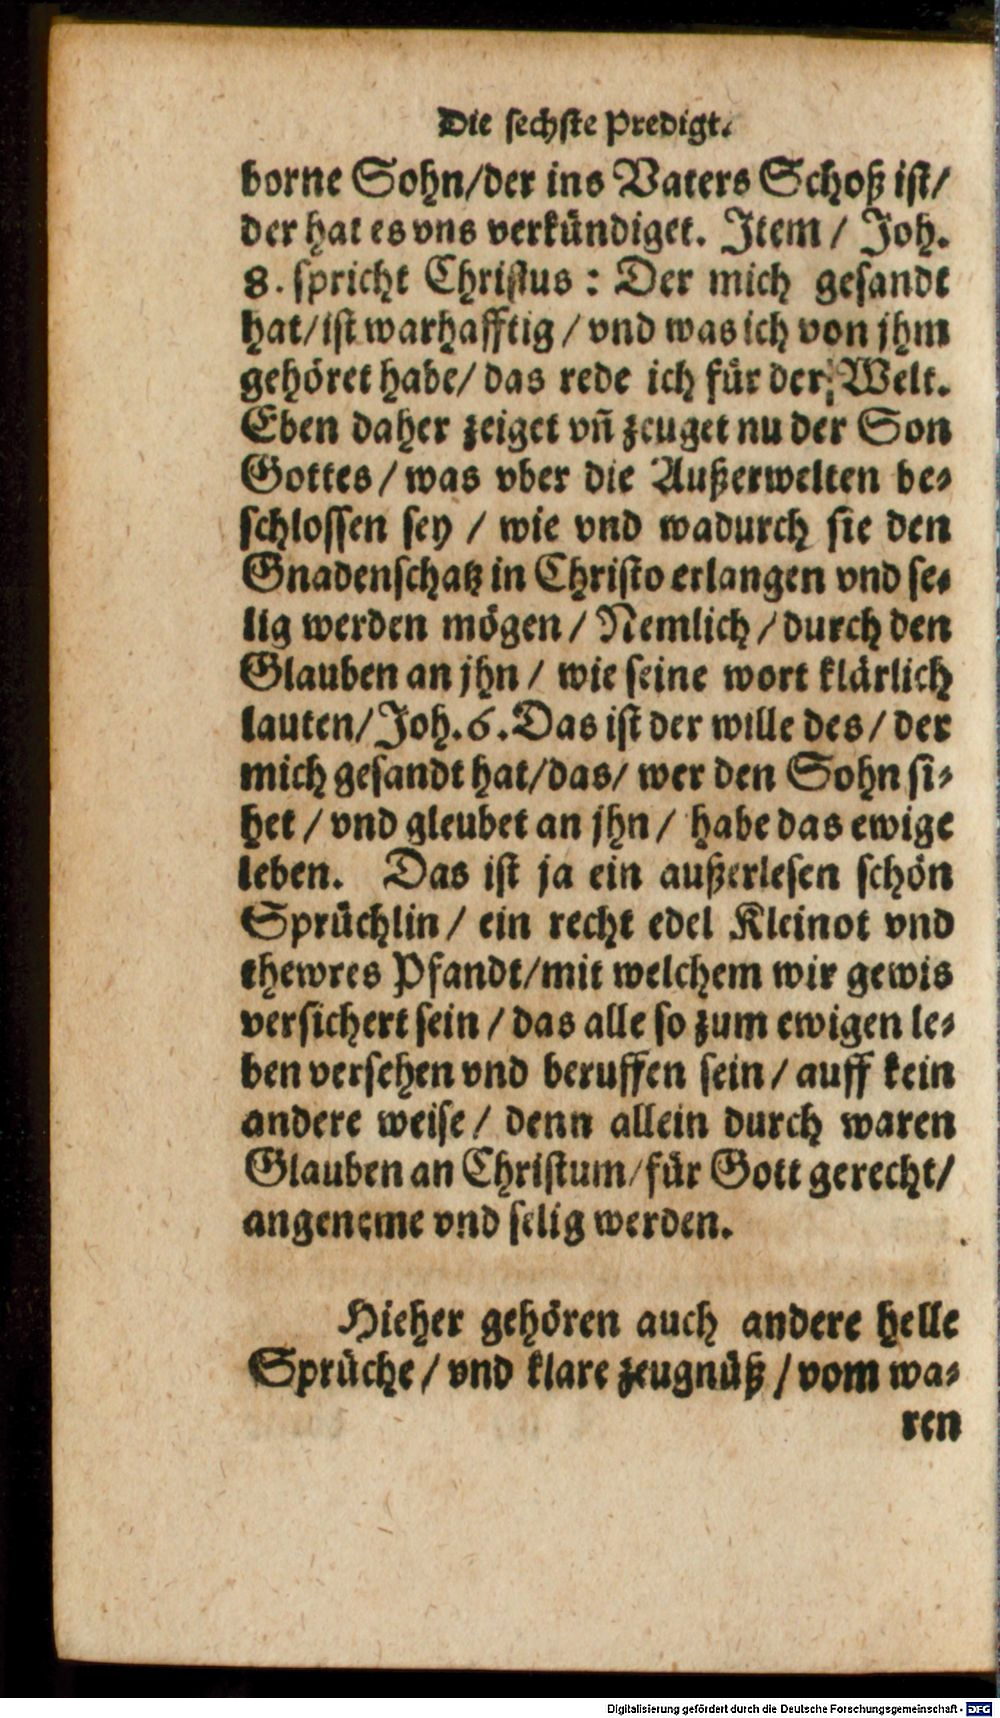 Die sechste Predigt.
borne Sohn/der ins Vaters Schoß ist/
der hat es vns verkündiget. Item / Joh.
8. spricht Christus : Der mich gesandt
hat/ist warhafftig / vnd was ich von jhm
gehöret habe/ das rede ich für der Welt.
Eben daher zeiget vñ zeuget nu der Son
Gottes / was vber die Außerwelten be-
schlossen sey / wie vnd wadurch sie den
Gnadenschatz in Christo erlangen vnd se-
lig werden mögen / Nemlich / durch den
Glauben an jhn / wie seine wort klärlich
lauten/ Joh. 6. Das ist der wille des / der
mich gesandt hat/das/ wer den Sohn si-
het / vnd gleubet an jhn / habe das ewige
leben. Das ist ja ein außerlesen schön
Sprüchlin / ein recht edel Kleinot vnd
thewres Pfandt/mit welchem wir gewis
versichert sein / das alle so zum ewigen le-
ben versehen vnd beruffen sein / auff kein
andere weise / denn allein durch waren
Glauben an Christum/für Gott gerecht/
angeneme vnd selig werden.
Hieher gehören auch andere helle
Sprüche / vnd klare zeugnüß / vom wa-
ren
Digitalisierung gefördert durch die Deutsche Forschungsgemeinschaft - DFG